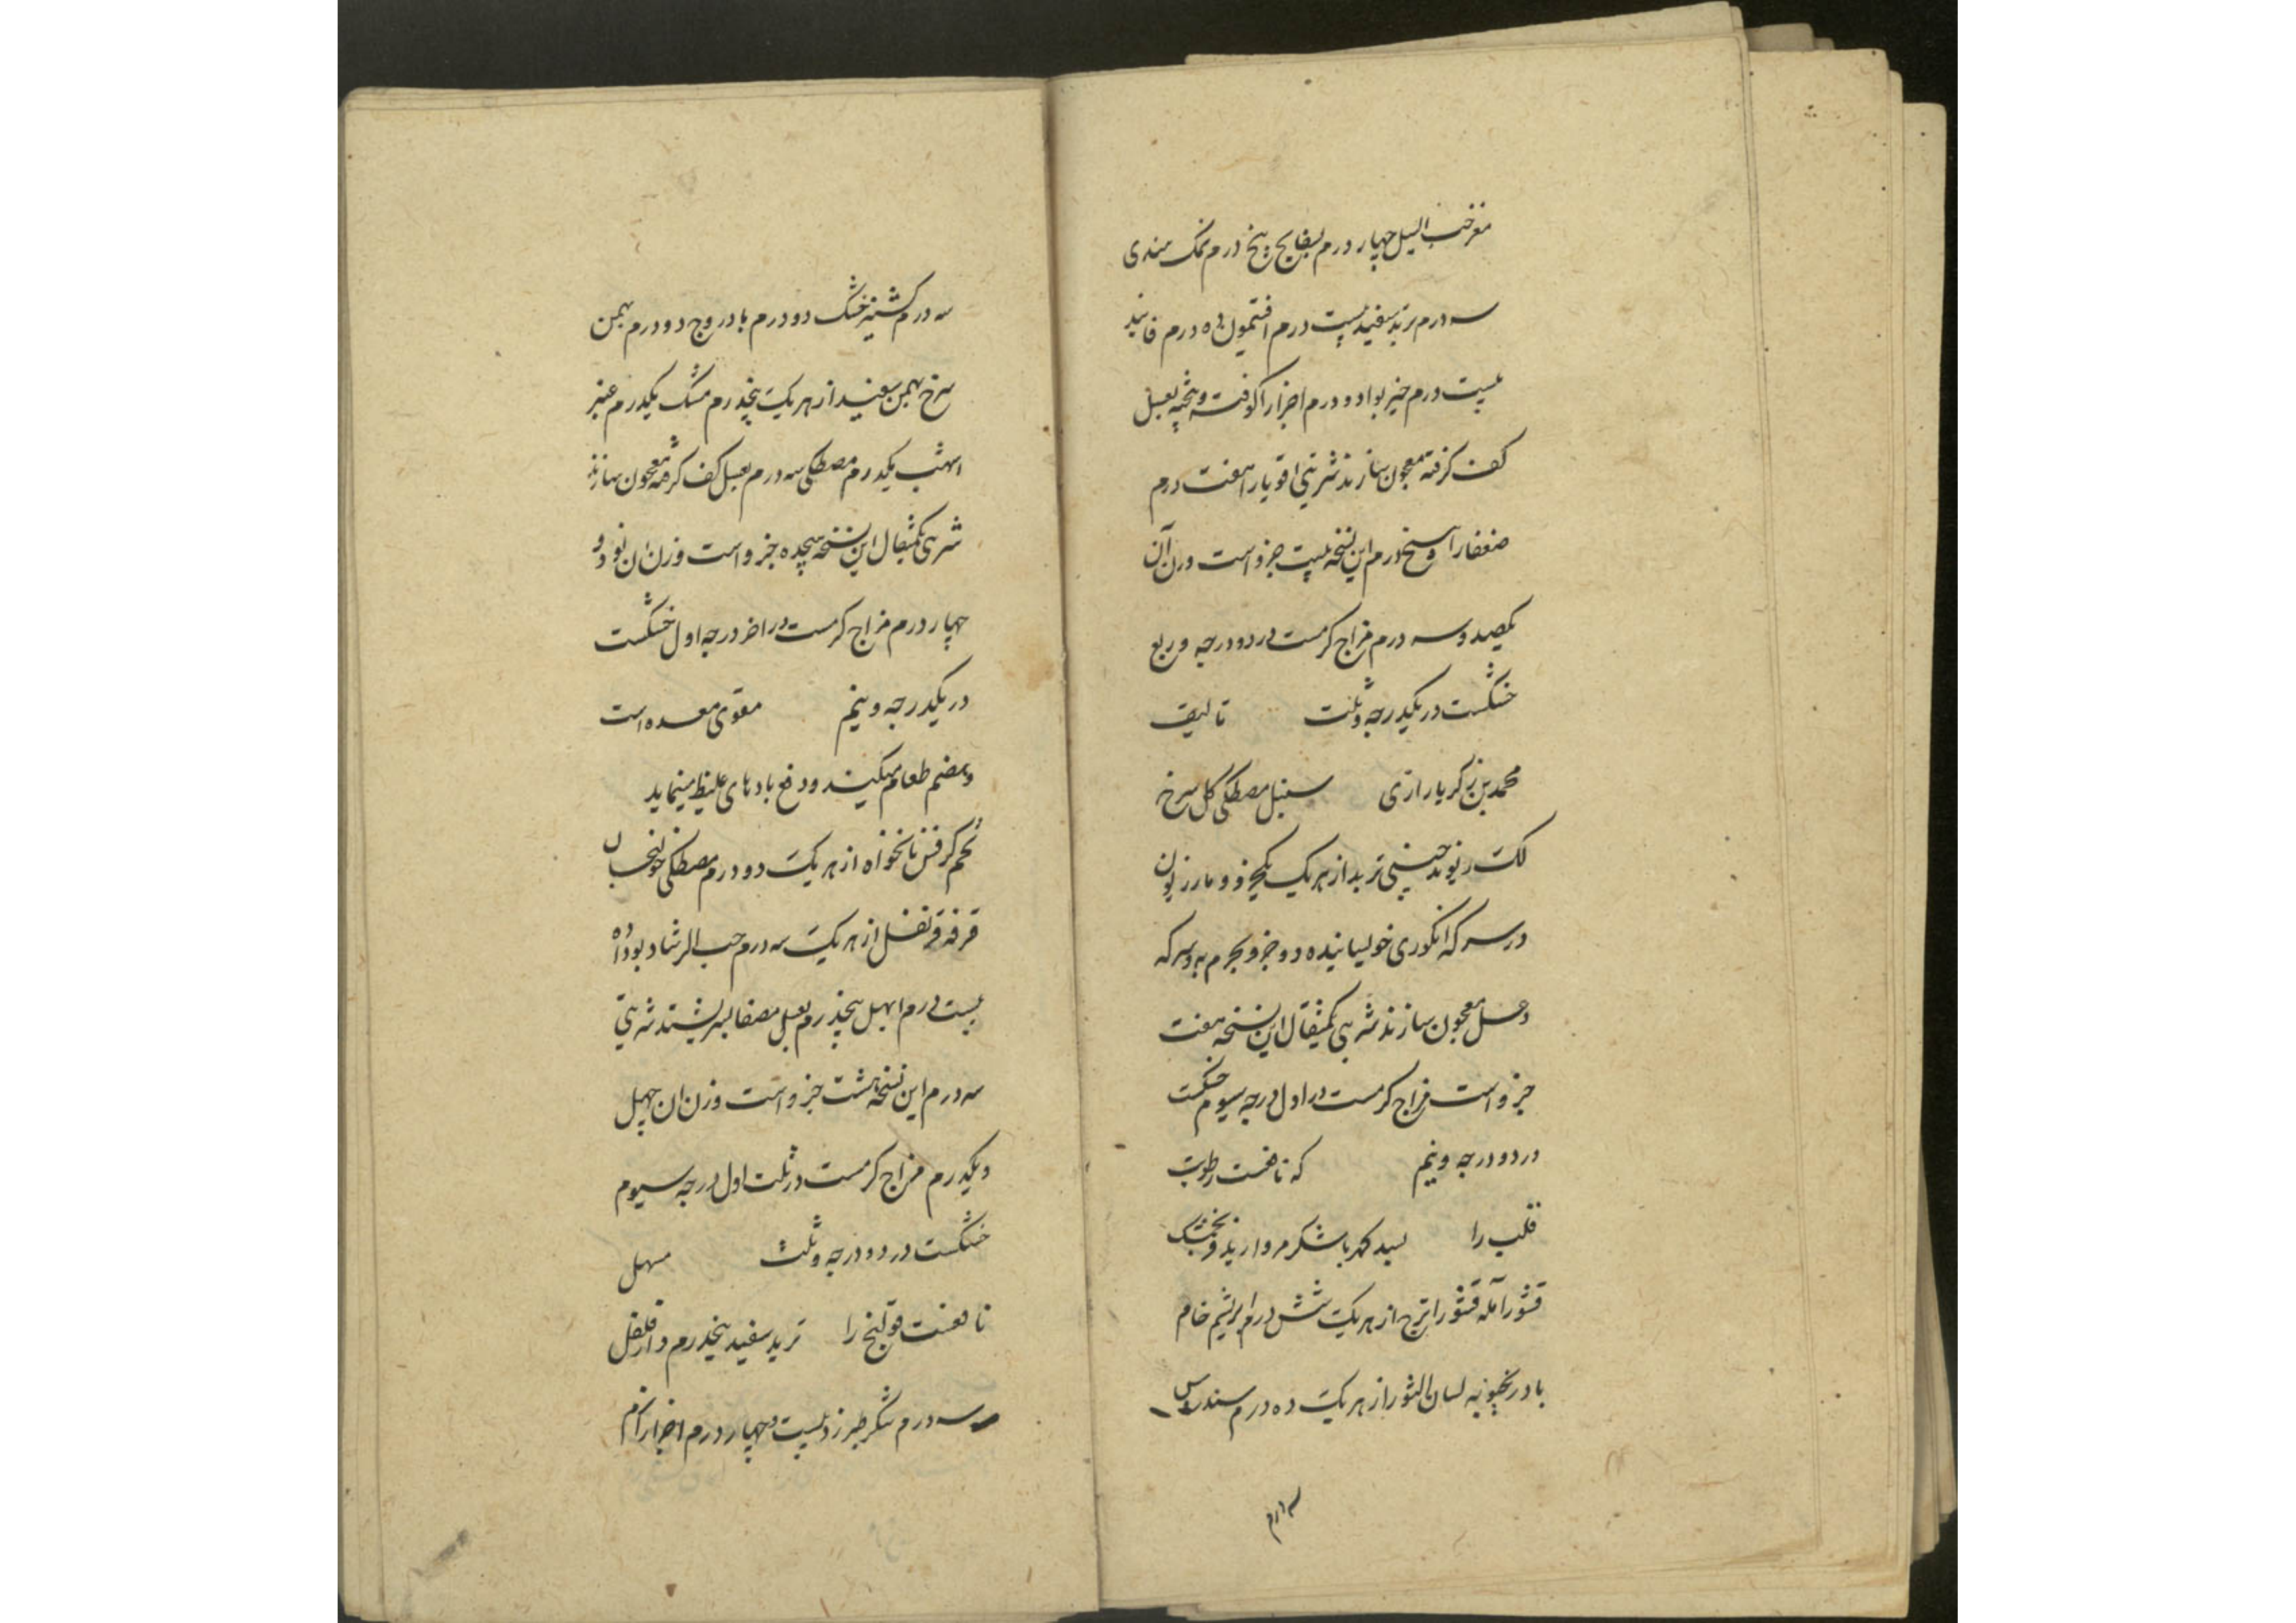 مغز حب النیل چهار درم بسفایج پنج درم نمک هندی
سه درم تربد سفید بیست درم افتیمون ده درم فانید
بیست درم خیربوا دو درم اجزا را کوفته و بیخته بعسل
کف گرفته معجون سازند شربتی اقویا را هفت درم
ضعفا را پنج درم این نسخه بیست جزو است وزن آن
یکصد و سه درم مزاج گرمست در دو درجه و ربع
خشکست در یکدرجه و ثلث تالیف
محمد بن زکریا رازی سنبل مصطکی گل سرخ
لک ریوند چینی تربد از هر یک یکجزو و مازریون
در سرکه انگوری خوسانیده دو جزو
و عسل معجون سازند شربتی یکمثقال این نسخه هفت
جزو است مزاج گرمست در اول درجه سیوم خشکست
در دو درجه و نیم که نافعست رطوبت
قلب را بسد کهربا شکر مروارید فرنجمشک
قشور آمله قشور اترج از هر یک شش درم ابریشم خام
بادرنجبویه لسان الثور از هر یک ده درم سندروس
سه درم
سه درم کشنیز خشک دو درم بادروج دو درم بهمن
سرخ بهمن سفید از هر یک پنجدرم مشک یکدرم عنبر
اشهب یکدرم مصطکی سه درم بعسل کف گرفته معجون سازند
شربتی یکمثقال این نسخه هیجده جزو است وزن آن نود و
چهار درم مزاج گرمست در اخر درجه اول خشکست
در یکدرجه و نیم مقوی معده است
و هضم طعام میکند و دفع بادهای غلیظ مینماید
تخم کرفس نانخواه از هر یک دو درم مصطکی خولنجان
قرفه قرنفل از هر یک سه درم حب الرشاد بو داده
بیست درم ابهل پنجدرم بعسل مصفا بسرشند شربتی
سه درم این نسخه هشت جزو است وزن ان چهل
و یکدرم مزاج گرمست در ثلث اول درجه سیوم
خشکست در دو درجه و ثلث مسهل
نافعست قولنج را تربد سفید پنجدرم دارفلفل
سه درم شکر طبرزد بیست و چهار درم اجزا را نرم